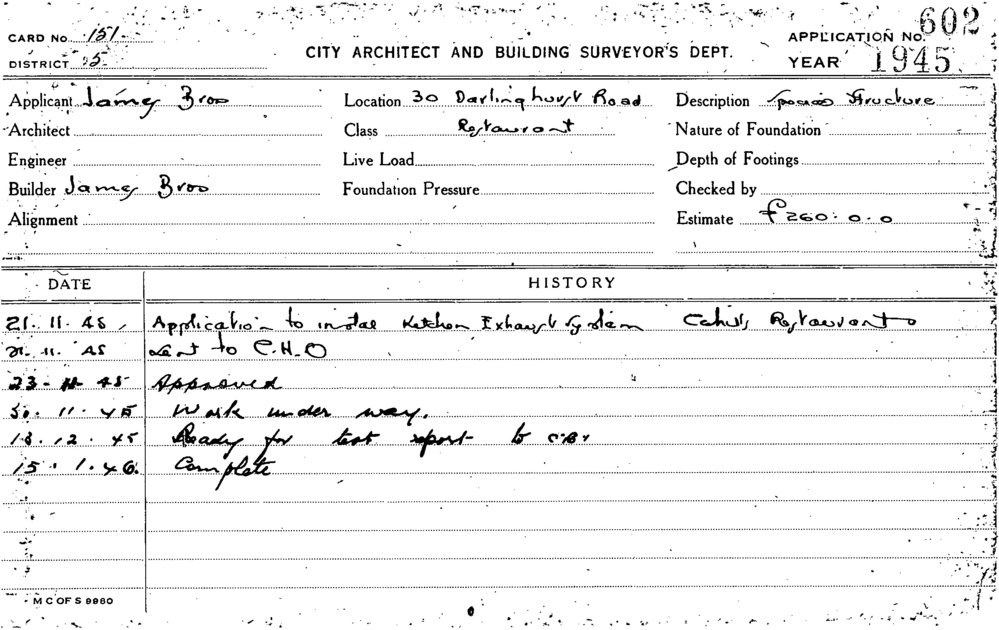 CARD No. 151
APPLICATION No. 602
DISTRICT 5
CITY ARCHITECT AND BUILDING SURVEYOR'S DEPT.
YEAR 1945
Applicant James Bros Location 30 Darlinghurst Road Description Special Structure
Architect Class Restaurant Nature of Foundation
Engineer Live Load Depth of Footings
Builder James Bros Foundation Pressure Checked by
Alignment Estimate £260.0.0
DATE HISTORY
21.11.45 Application to instal Kitchen Exhaust System Restaurant
21.11.45 Sent to C.H.O
23-11-45 Approved
30.11.45 Work under way.
18.12.45 Ready for test report to
15.1.46. Complete
M C OF S 9960